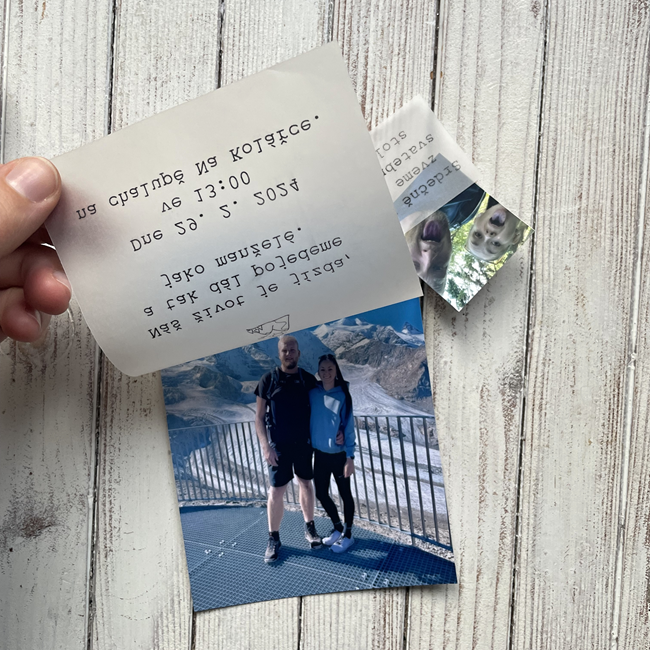 Náš život je jízda,
a tak dál pojedeme
jako manželé.
Dne 29. 2. 2024
ve 13:00
na chalupě Na Kolářce.
rdečně
zveme
svateb